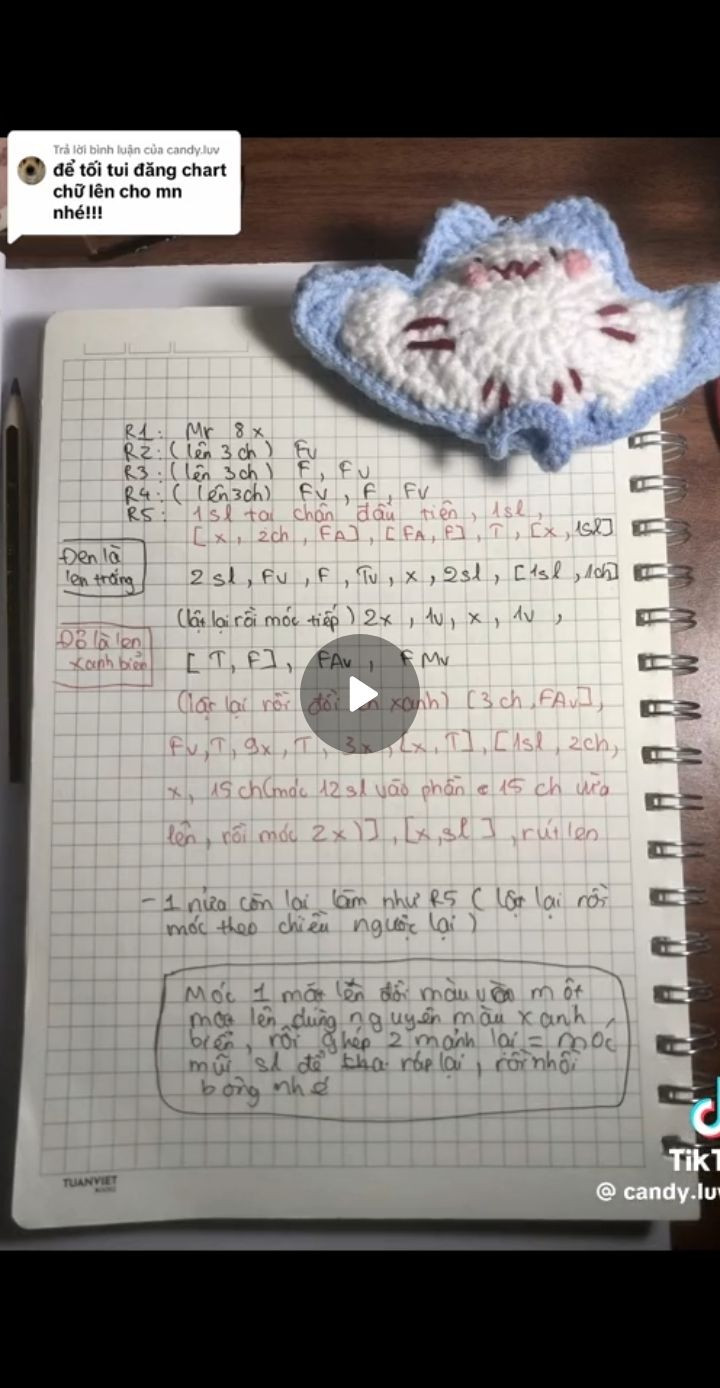 Trả lời bình luận của candy.luv
để tối tui đăng chart
chữ lên cho mn
nhé!!!
R1: Mr 8x
R2: (lên 3 ch) Fv
R3: (lên 3ch) F, Fv
R4: (lên 3ch) Fv, F, Fv
R5: 1sl tại chân đầu tiên, 1sl,
[x, 2ch, FA], [FA, F], T, [x, 1sl]
Đen là
len trắng
2sl, Fv, F, Tv, x, 2sl, [1sl, 1ch]
(lật lại rồi móc tiếp) 2x, 1v, x, 1v,
Đỏ là len
xanh biển
[T, F], FAv, FMv
(lật lại rồi đổi xanh) [3ch, FAv],
Fv, T, 9x, T, 3x, [x, T], [1sl, 2ch,
x, 15ch(móc 12sl vào phần 15 ch vừa
lên, rồi móc 2x)], [x, sl], rút len
- 1 nửa còn lại làm như R5 (lật lại rồi
móc theo chiều ngược lại)
Móc 1 mặt lên đổi màu một
mặt lên dùng nguyên màu xanh
biển, rồi ghép 2 mảnh lại = móc
mũi sl để ráp lại, rồi nhồi
bông nhé
TUANVIET
TikT
@ candy.luv